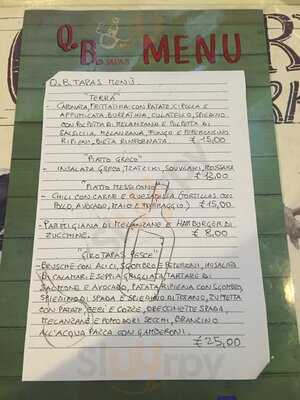 Q.B. TAPAS MENU
Q.B. TAPAS MENÙ
"TERRA"
- CAPONATA, FRITTATINA CON PATATE, CIPOLLA E
AFFUMICATA, BURRATINA, CULATELLO, SPIEDINO
CON POLPETTA DI MELANZANE E POLPETTA DI
SALSICCIA, MELANZANA, FUNGO E PEPERONCINO
RIPIENI, BIETA RIPASSATA. € 15,00
"PIATTO GRECO"
- INSALATA GRECA, TZATZIKI, SOUVLAKI, MOUSSAKA
€ 12,00
"PIATTO MESSICANO"
- CHILI CON CARNE E QUESADILLA (TORTILLAS CON
POLLO, AVOCADO, MAIO E FORMAGGIO) € 15,00
- PARMIGIANA DI MELANZANE O HAMBURGER DI
ZUCCHINE. € 8,00
"GIRO TAPAS PESCE"
- BRUSCHE CON ALICI, SGOMBRO E PEPERONI, INSALATA
DI CALAMARI E SEPPIA GRIGLIATA, TARTARE DI
SALMONE E AVOCADO, PATATA RIPIENA CON SGOMBRO,
SPIEDINO DI SPADA E SPIEDINO DI TOTANO, ZUPPETTA
CON PATATE, CECI E COZZE, ORECCHIETTE SPADA,
MELANZANE E POMODORI SECCHI, BRANZINO
ALL'ACQUA PAZZA CON GAMBERONI.
€ 25,00